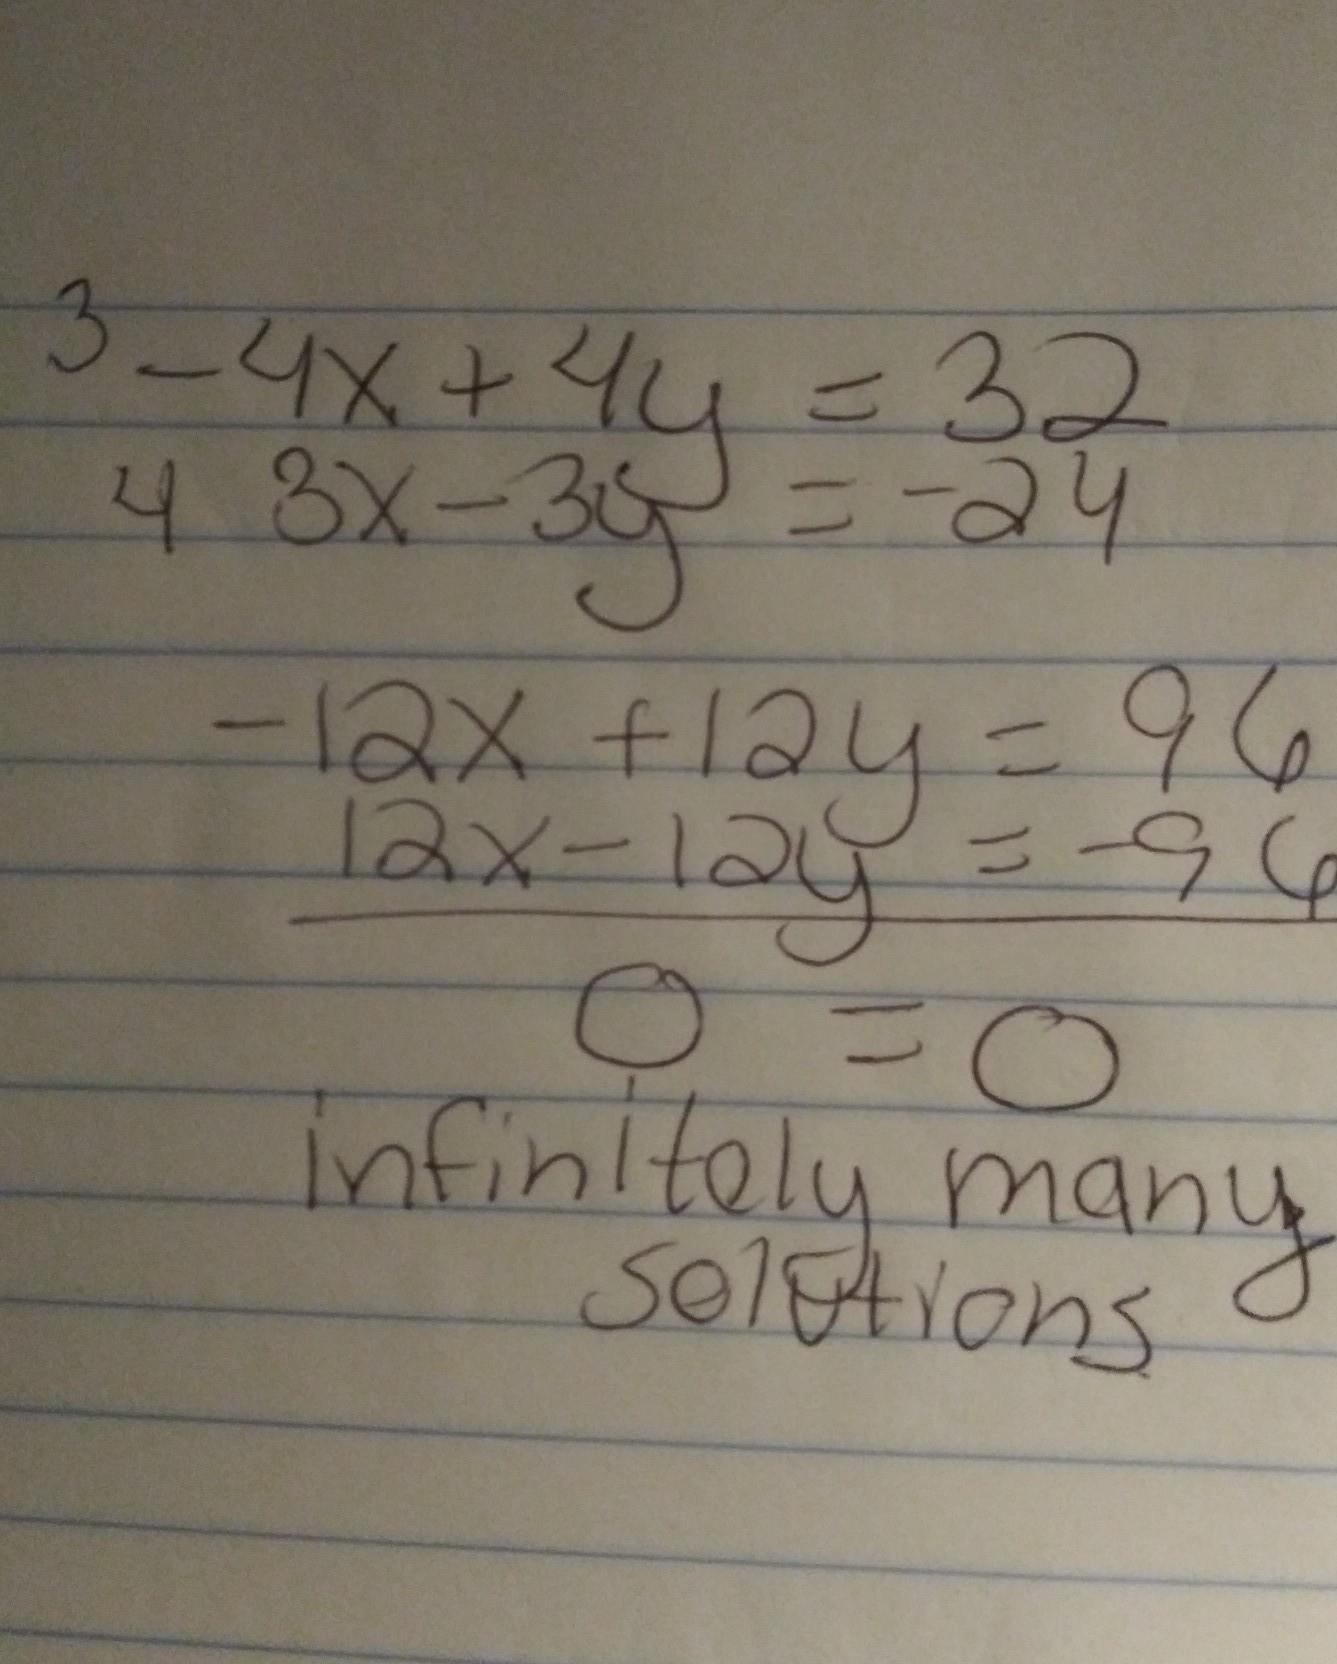 3 -4x + 4y = 32
4 3x - 3y = -24
-12x + 12y = 96
12x - 12y = -96
0 = 0
infinitely many
solutions